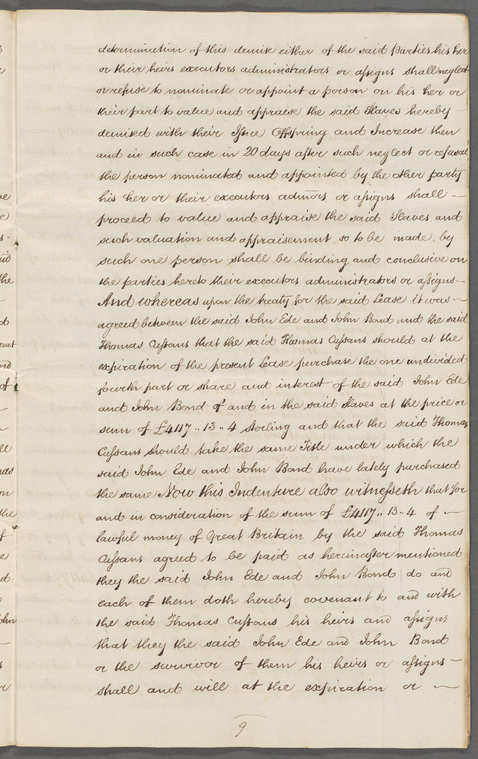 determination of this demise either of the said Parties his her
or their heirs executors administrators or assigns shall neglect
or refuse to nominate or appoint a person on his her or
their part to value and appraise the said Slaves hereby
demised with their Issue Offspring and Increase then
and in such case in 20 days after such neglect or refusal
the person nominated and appointed by the other party
his her or their executors admōrs or assigns shall —
proceed to value and appraise the said Slaves and
such valuation and appraisement so to be made by
such one person shall be binding and conclusive on
the parties hereto their executors administrators or assigns —
And whereas upon the treaty for the said Lease it was —
agreed between the said John Ede and John Bond and the said
Thomas Cussans that the said Thomas Cussans should at the
expiration of the present Lease purchase the one undivided
fourth part or share and interest of the said John Ede
and John Bond of and in the said Slaves at the price or
sum of £4117.. 13.. 4 sterling and that the said Thomas
Cussans should take the same Title under which the
said John Ede and John Bond have lately purchased
the same Now this Indenture also witnesseth that for
and in consideration of the sum of £4117.. 13.. 4. of —
lawful money of Great Britain by the said Thomas
Cussans agreed to be paid as hereinafter mentioned
they the said John Ede and John Bond do and
each of them doth hereby covenant to and with
the said Thomas Cussans his heirs and assigns
that they the said John Ede and John Bond
or the survivor of them his heirs or assigns —
shall and will at the expiration or —
9